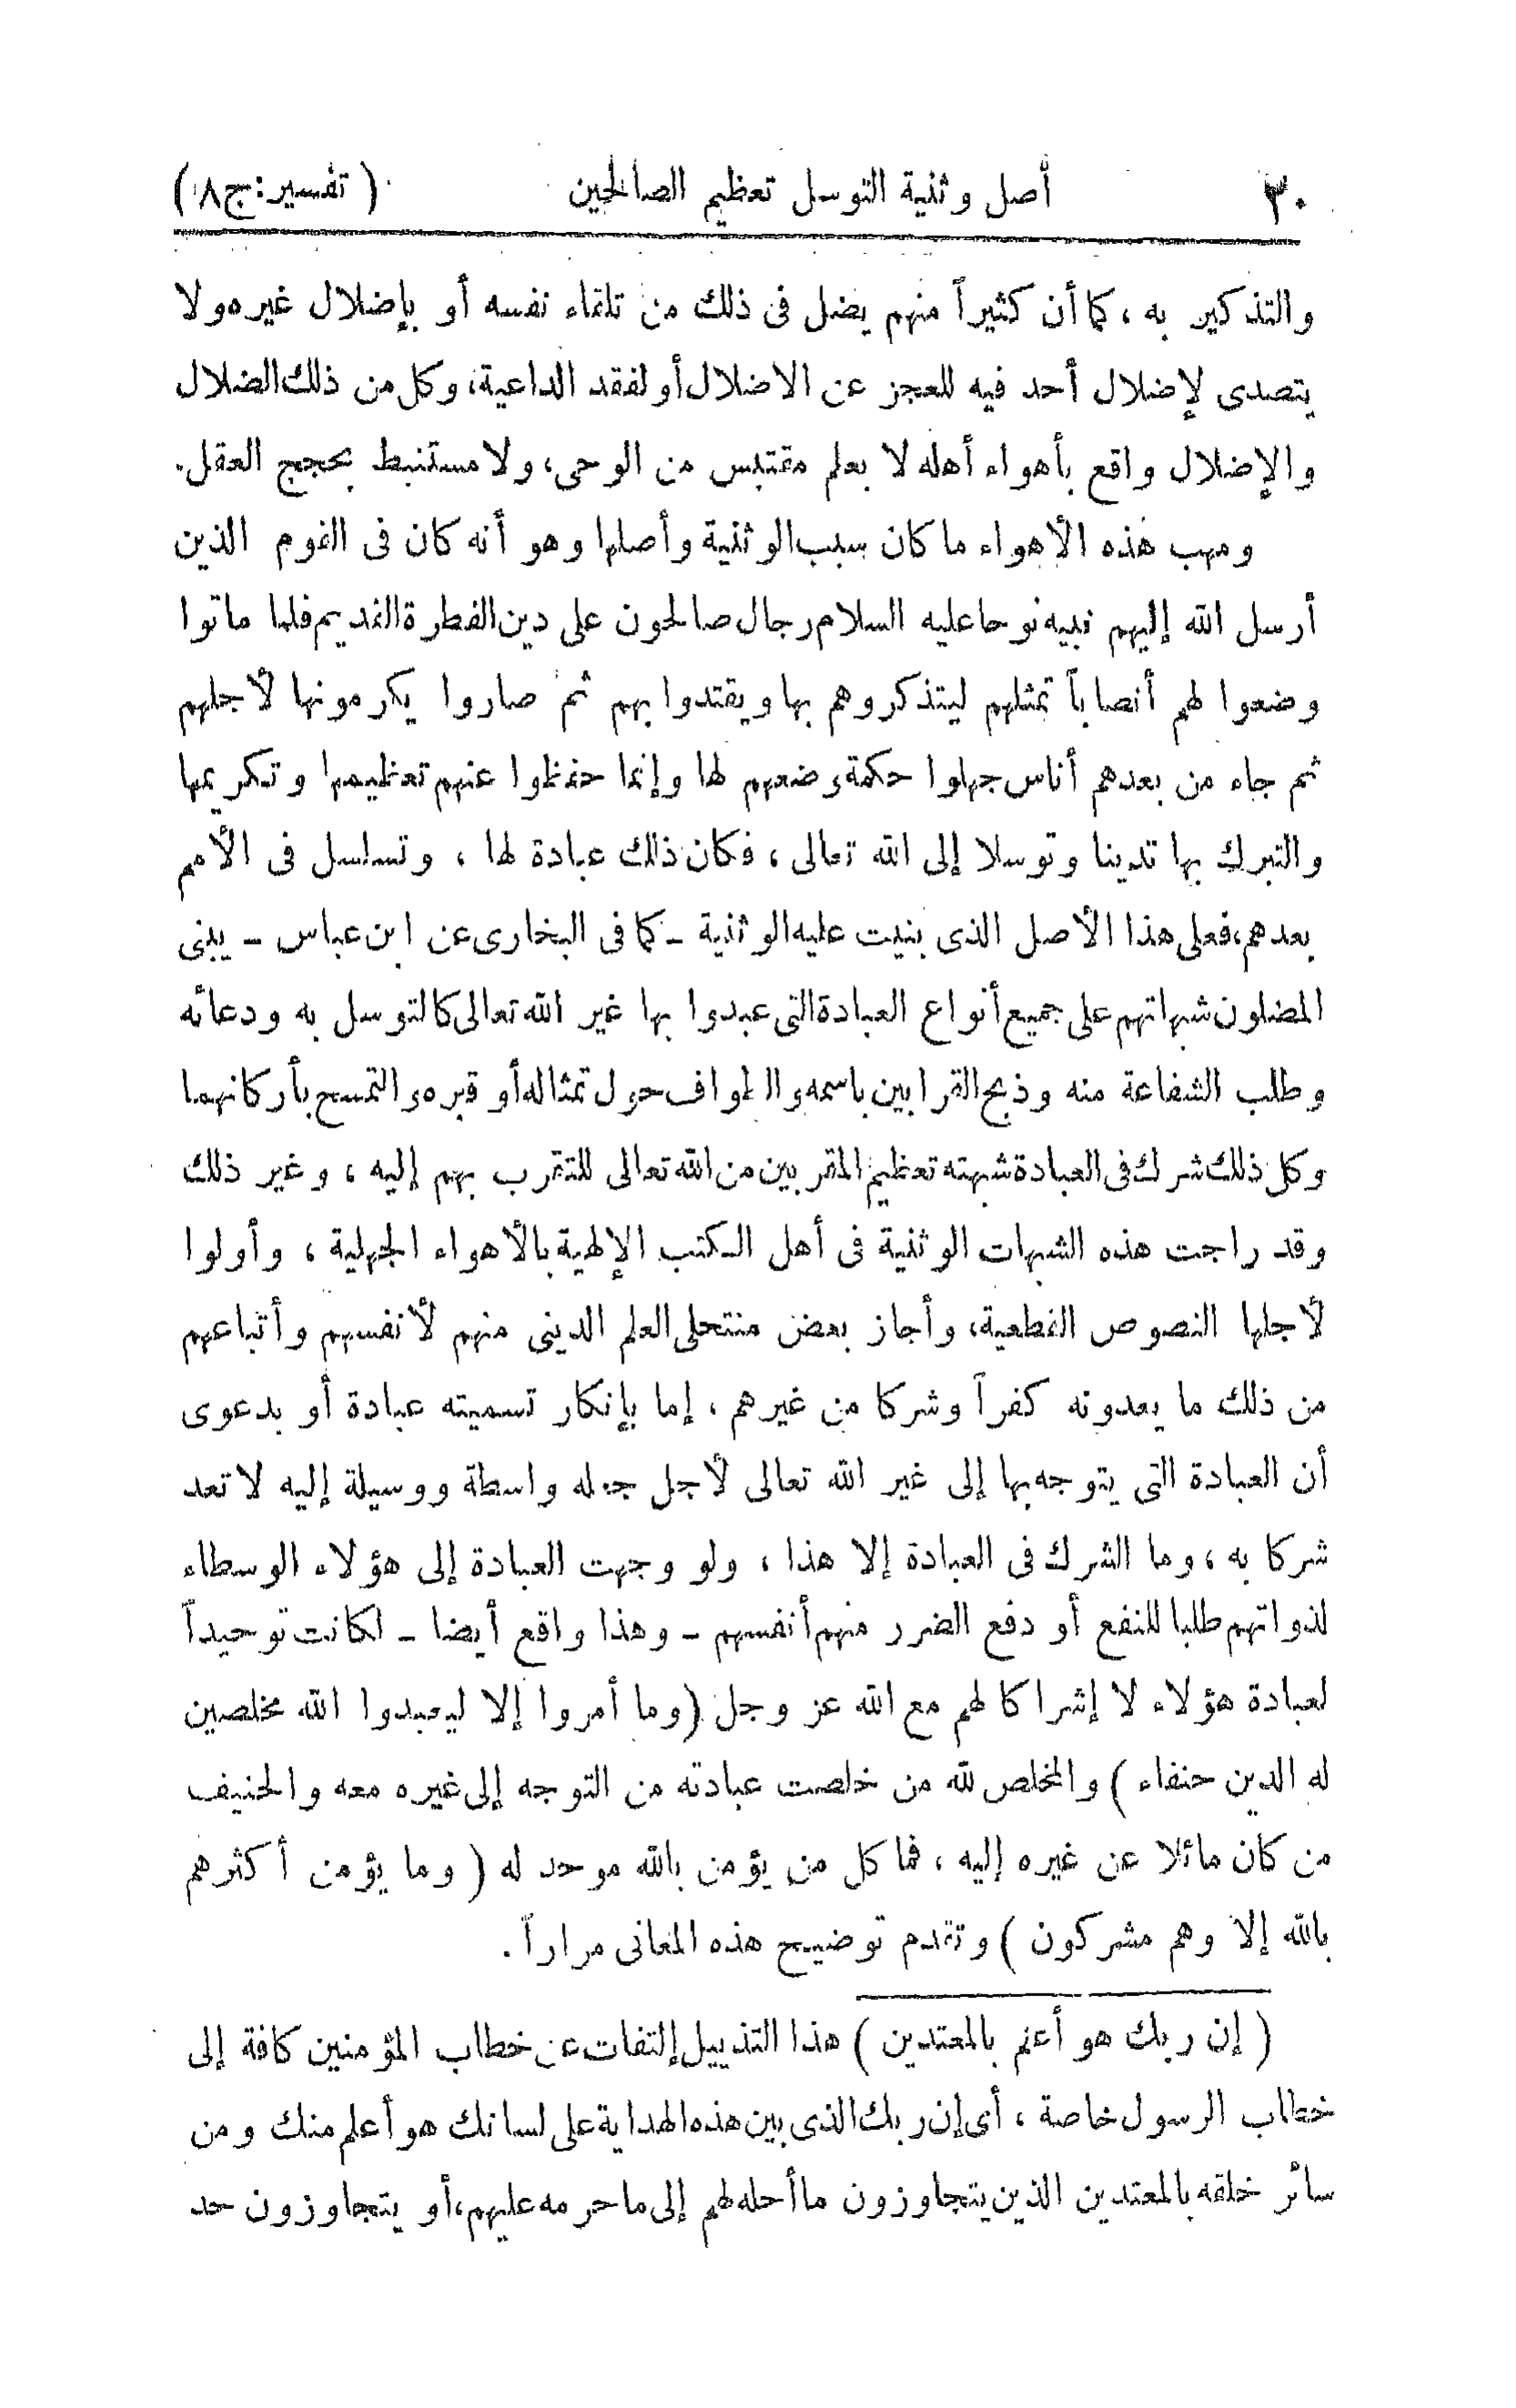 ٣٠ أصل وثنية التوسل تعظيم الصالحين (تفسير: ج ٨)
والتذكير به ، كما أن كثيراً منهم يضل فى ذلك من تلقاء نفسه أو بإضلال غيره ولا
يتصدى لإضلال أحد فيه للعجز عن الاضلال أو لفقد الداعية، وكل من ذلك الضلال
والإضلال واقع بأهواء أهله لا بعلم مقتبس من الوحى، ولا مستنبط بحجج العقل.
ومهب هذه الأهواء ما كان سبب الوثنية وأصلها وهو أنه كان فى القوم الذين
أرسل الله إليهم نبيه نوحا عليه السلام رجال صالحون على دين الفطرة القديم فلما ماتوا
وضعوا لهم أنصاباً تمثلهم ليتذكروهم بها ويقتدوا بهم ثم صاروا يكرمونها لأجلهم
ثم جاء من بعدهم أناس جهلوا حكمة وضعهم لها وإنما حفظوا عنهم تعظيمها وتكريمها
والتبرك بها تدينا وتوسلا إلى الله تعالى ، فكان ذلك عبادة لها ، وتسلسل فى الأمم
بعدهم، فعلى هذا الأصل الذى بنيت عليه الوثنية ــ كما فى البخارى عن ابن عباس ــ يبنى
المضلون شبهاتهم على جميع أنواع العبادة التى عبدوا بها غير الله تعالى كالتوسل به ودعائه
وطلب الشفاعة منه وذبح القرابين باسمه والطواف حول تمثاله أو قبره والتمسح بأركانهما
وكل ذلك شرك فى العبادة شبهته تعظيم المقربين من الله تعالى للتقرب بهم إليه ، وغير ذلك
وقد راجت هذه الشبهات الوثنية فى أهل الكتب الإلهية بالأهواء الجهلية ، وأولوا
لأجلها النصوص القطعية، وأجاز بعض منتحلى العلم الدينى منهم لأنفسهم وأتباعهم
من ذلك ما يعدونه كفراً وشركا من غيرهم ، إما بإنكار تسميته عبادة أو بدعوى
أن العبادة التى يتوجه بها إلى غير الله تعالى لأجل جعله واسطة ووسيلة إليه لا تعد
شركا به ، وما الشرك فى العبادة إلا هذا ، ولو وجهت العبادة إلى هؤلاء الوسطاء
لذواتهم طلبا للنفع أو دفع الضرر منهم أنفسهم ــ وهذا واقع أيضا ــ لكانت توحيداً
لعبادة هؤلاء لا إشراكا لهم مع الله عز وجل (وما أمروا إلا ليعبدوا الله مخلصين
له الدين حنفاء ) والمخلص لله من خلصت عبادته من التوجه إلى غيره معه والحنيف
من كان مائلا عن غيره إليه ، فما كل من يؤمن بالله موحد له ( وما يؤمن أكثرهم
بالله إلا وهم مشركون ) وتقدم توضيح هذه المعانى مراراً .
( إن ربك هو أعلم بالمعتدين ) هذا التذييل إلتفات عن خطاب المؤمنين كافة إلى
خطاب الرسول خاصة ، أى إن ربك الذى بين هذه الهداية على لسانك هو أعلم منك ومن
سائر خلقه بالمعتدين الذين يتجاوزون ما أحله لهم إلى ما حرمه عليهم، أو يتجاوزون حد